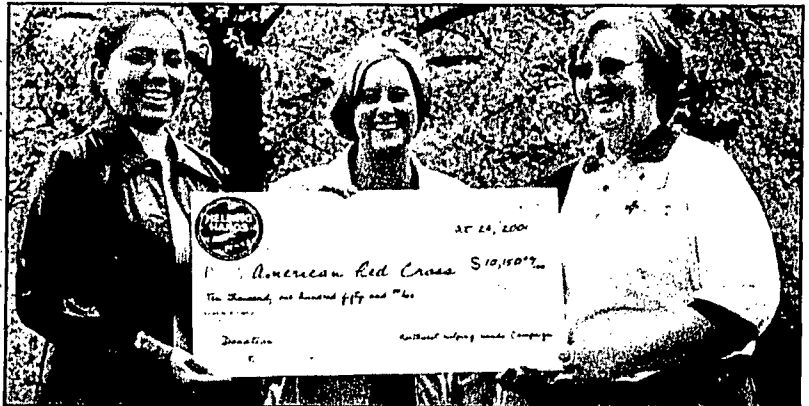 HELPING
HANDS
2001
American Red Cross $10,150
Ten thousand, one hundred fifty and
Donation Northwest Helping Hands Campaign